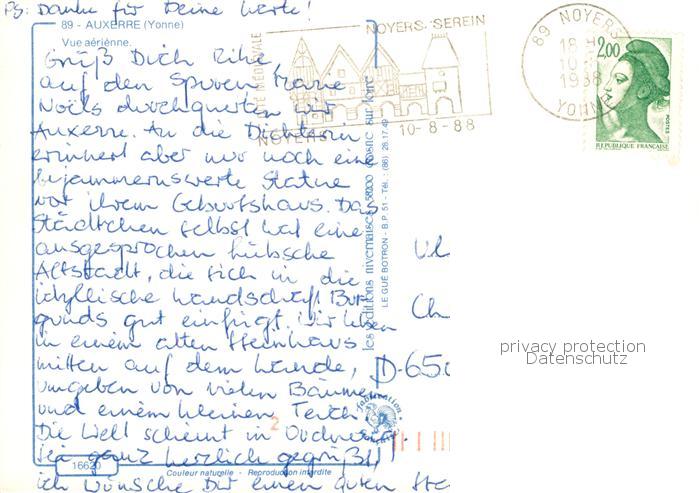 PS: Danke für Deine Karte!
89 - AUXERRE (Yonne)
Vue aérienne.
Grüß Dich
auf den Spuren Marie
Noëls durchquerten wir
Auxerre. An die Dichterin
erinnert aber nur noch eine
bejammernswerte Statue
vor ihrem Geburtshaus. Das
Städtchen selbst hat eine
ausgesprochen hübsche
Altstadt, die sich in die
idyllische Landschaft Bur-
gunds gut einfügt. Wir leben
in einem alten Steinhaus
mitten auf dem Lande,
umgeben von vielen Bäumen
und einem kleinen Teich.
Die Welt scheint in
Sei ganz herzlich gegrüßt!
ich wünsche Dir einen guten
16620
Couleur naturelle - Reproduction interdite
les éditions nivernaises 58200 cosne sur loire
LE GUÉ BOTRON - B.P. 51 - Tél. : (86) 28.17.49
CITÉ MÉDIÉVALE
NOYERS-SEREIN
NOYERS
10-8-88
89 NOYERS
18 H
10-
1988
YONNE
2,00
POSTES
REPUBLIQUE FRANÇAISE
Ch
D-650
2
fabrication
privacy protection
Datenschutz